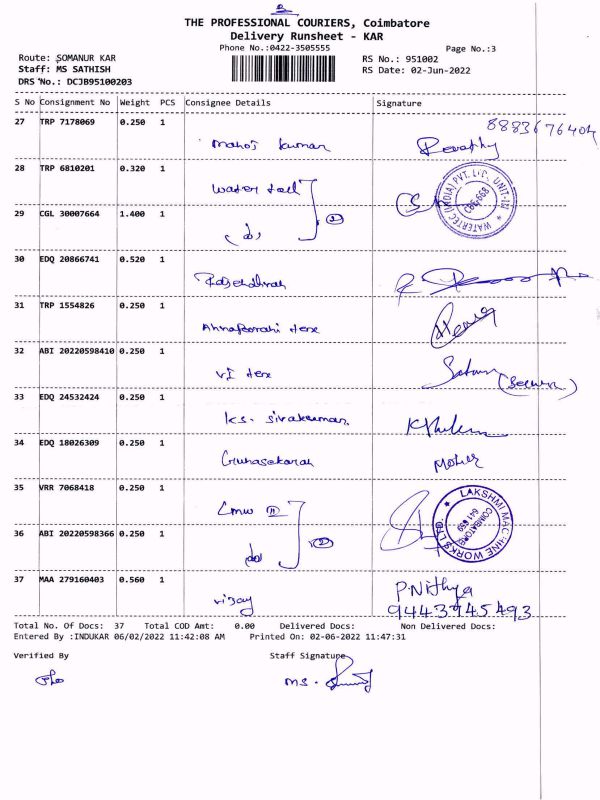 THE PROFESSIONAL COURIERS, Coimbatore
Delivery Runsheet - KAR
Phone No.:0422-3505555
Page No.:3
Route: SOMANUR KAR
RS No.: 951002
Staff: MS SATHISH
RS Date: 02-Jun-2022
DRS No.: DCJB95100203
S No Consignment No Weight PCS Consignee Details Signature
27 TRP 7178069 0.250 1
8883676404
Manoj kumar Revathy
28 TRP 6810201 0.320 1
Water tech
WATERTEC (INDIA) PVT. LTD., UNIT-III
CBE-668
29 CGL 30007664 1.400 1
do 2
30 EDQ 20866741 0.520 1
31 TRP 1554826 0.250 1
Annapoorani tex
32 ABI 20220598410 0.250 1
VI tex
33 EDQ 24532424 0.250 1
KS. Sivakumar
34 EDQ 18026309 0.250 1
Gunasekaran
35 VRR 7068418 0.250 1
LMW II
LAKSHMI MACHINE WORKS LTD
COIMBATORE
641 659
36 ABI 20220598366 0.250 1
do 2
37 MAA 279160403 0.560 1
Vijay P.Nithya
9443745493
Total No. Of Docs: 37 Total COD Amt: 0.00 Delivered Docs: Non Delivered Docs:
Entered By :INDUKAR 06/02/2022 11:42:08 AM Printed On: 02-06-2022 11:47:31
Verified By Staff Signature
MS.